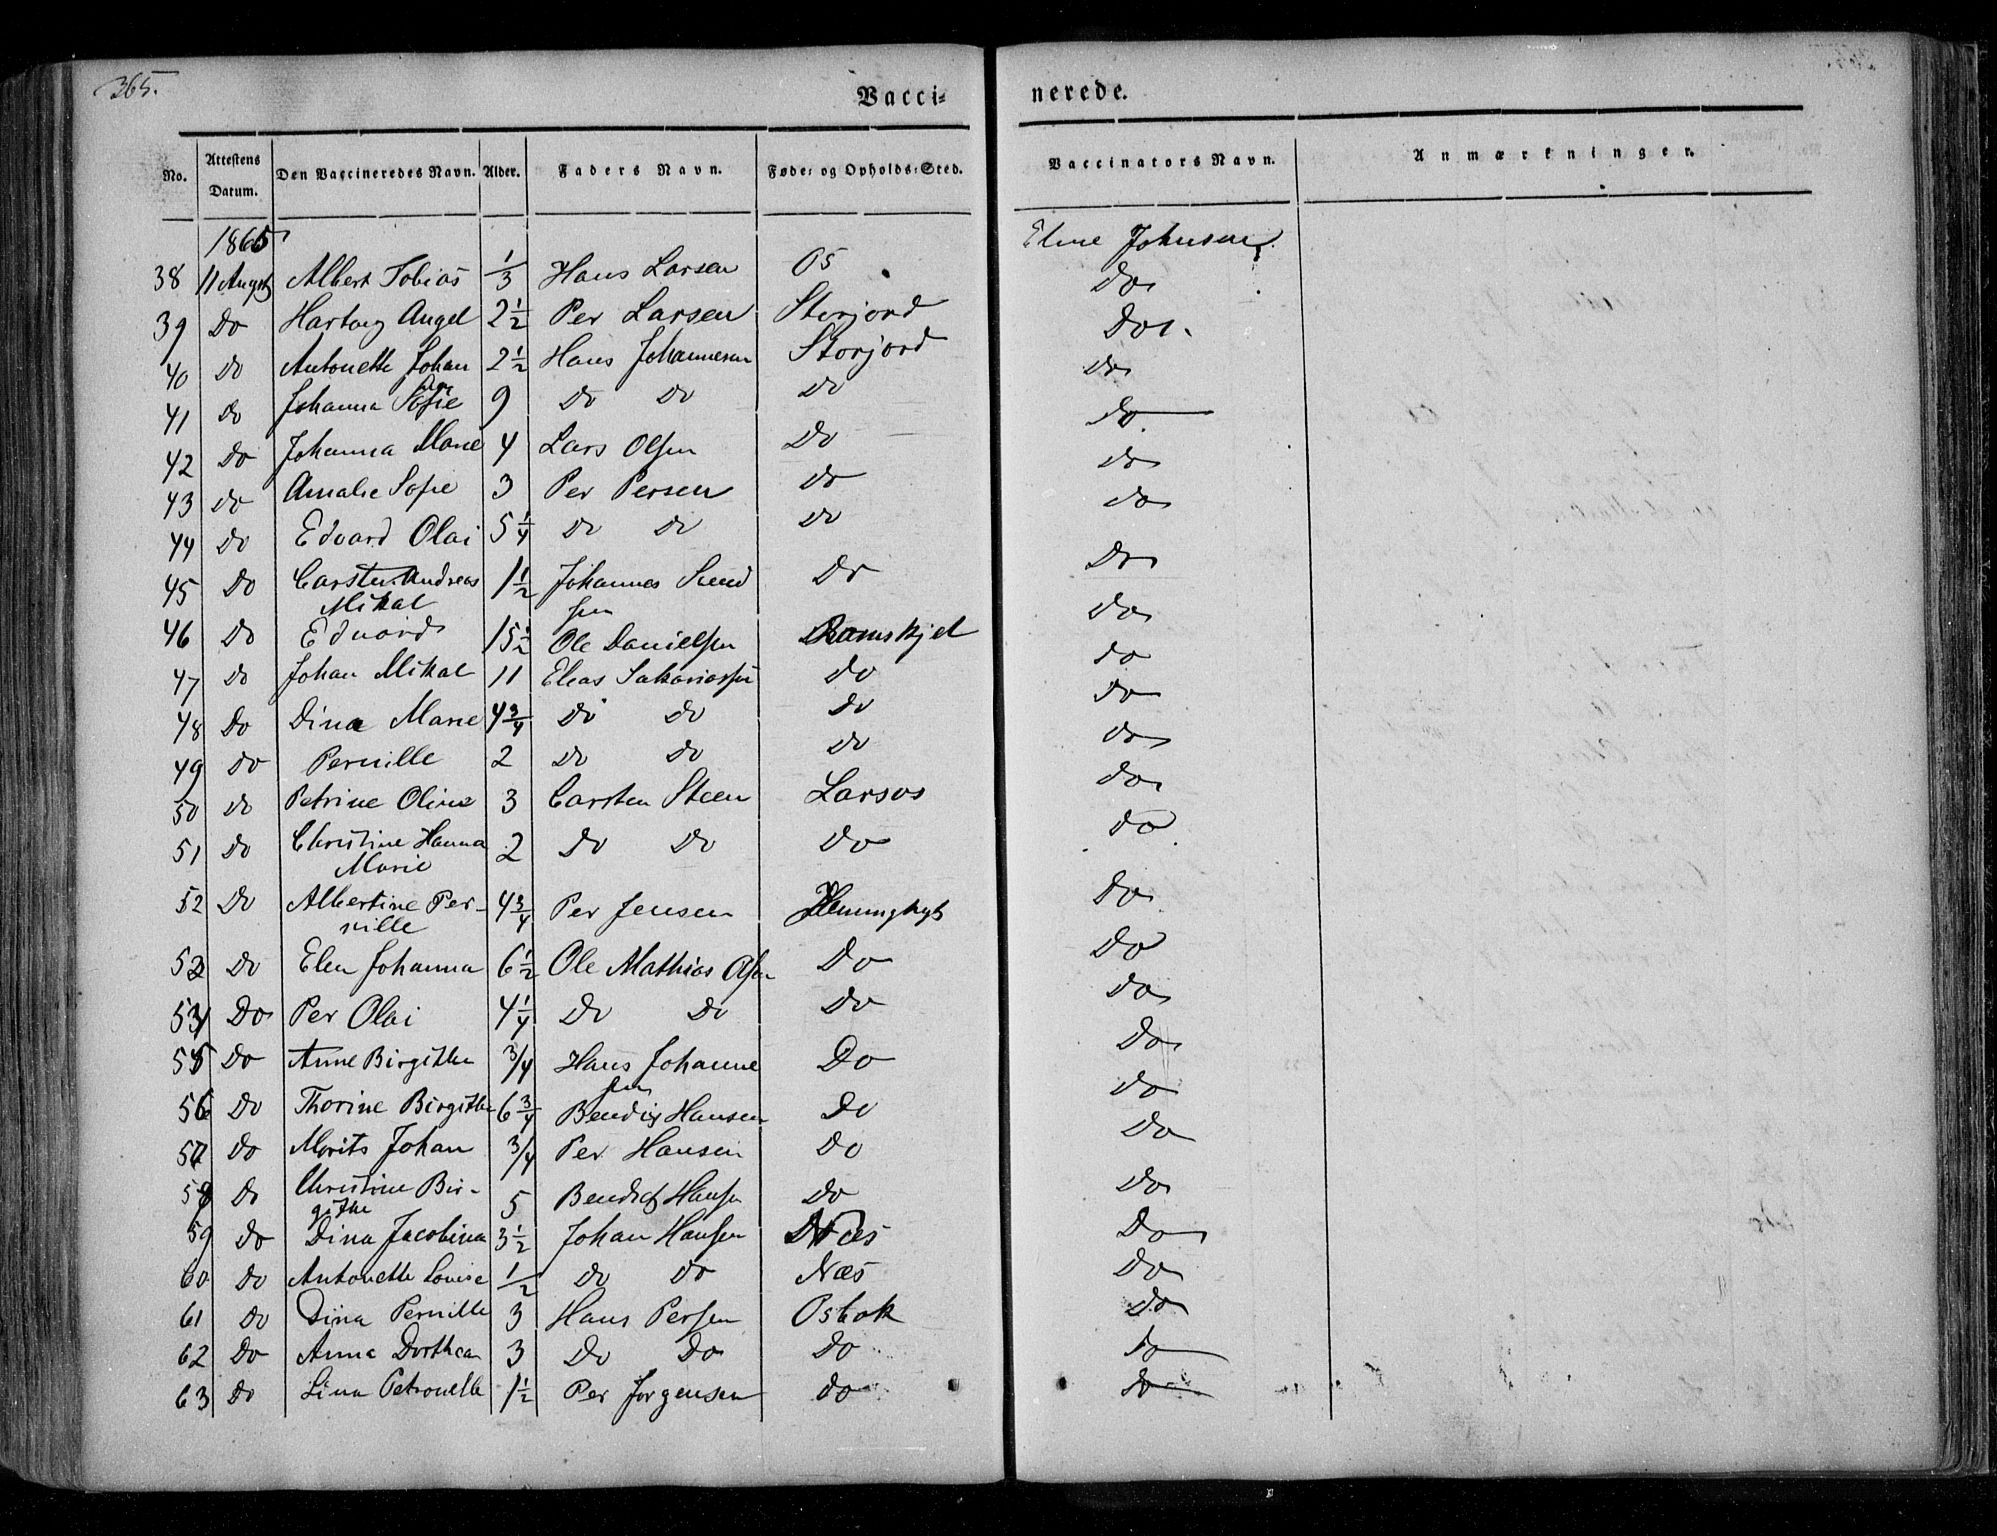 365.
Vacci- nerede.
No. Attestens Datum. Den Vaccineredes Navn. Alder. Faders Navn. Føde- og Opholds-Sted. Vaccinators Navn. Anmærkninger.
1865 Eline Johnsen
38 11 Augst Albert Tobias 1/3 Hans Larsen Os Do
39 Do Hartvig Angel 2 1/2 Per Larsen Storjord Do
40 Do Antonette Johan 2 1/2 Hans Johannesen Storjord Do
41 Do Johanna Sofie 9 Do Do Do Do
42 Do Johanna Marie 4 Lars Olsen Do Do
43 Do Amalie Sofie 3 Per Persen Do Do
44 Do Edvard Olai 5 1/4 Do Do Do Do
45 Do Carsten Andreas 1 1/2 Johannes Svend Do Do
Mikal sen
46 Do Edvard 15 1/2 Ole Danielsen Ramskjel Do
47 Do Johan Mikal 11 Elias Sakariassen Do Do
48 Do Dina Marie 4 3/4 Do Do Do Do
49 Do Pernille 2 Do Do Do Do
50 Do Petrine Oline 3 Carsten Steen Larsos Do
51 Do Christine Hanna 2 Do Do Do Do
Marie
52 Do Albertine Per- 4 3/4 Per Jensen Do
nille
53 Do Elen Johanna 6 1/2 Ole Mathias Olsen Do Do
54 Do Per Olai 4 1/4 Do Do Do Do
55 Do Anne Birgitha 3/4 Hans Johanne Do Do
sen
56 Do Thorine Birgitha 6 3/4 Bendix Hansen Do Do
57 Do Morits Johan 3/4 Per Hansen Do Do
58 Do Christine Bir- 5 Bendix Hansen Do Do
githe
59 Do Dina Jacobina 3 1/2 Johan Hansen Næs Do
60 Do Antonette Louise 1/2 Do Do Næs Do
61 Do Dina Pernille 3 Hans Persen Osbak Do
62 Do Anna Dorthea 3 Do Do Do Do
63 Do Lina Petronelle 1 1/2 Per Jørgensen Do Do